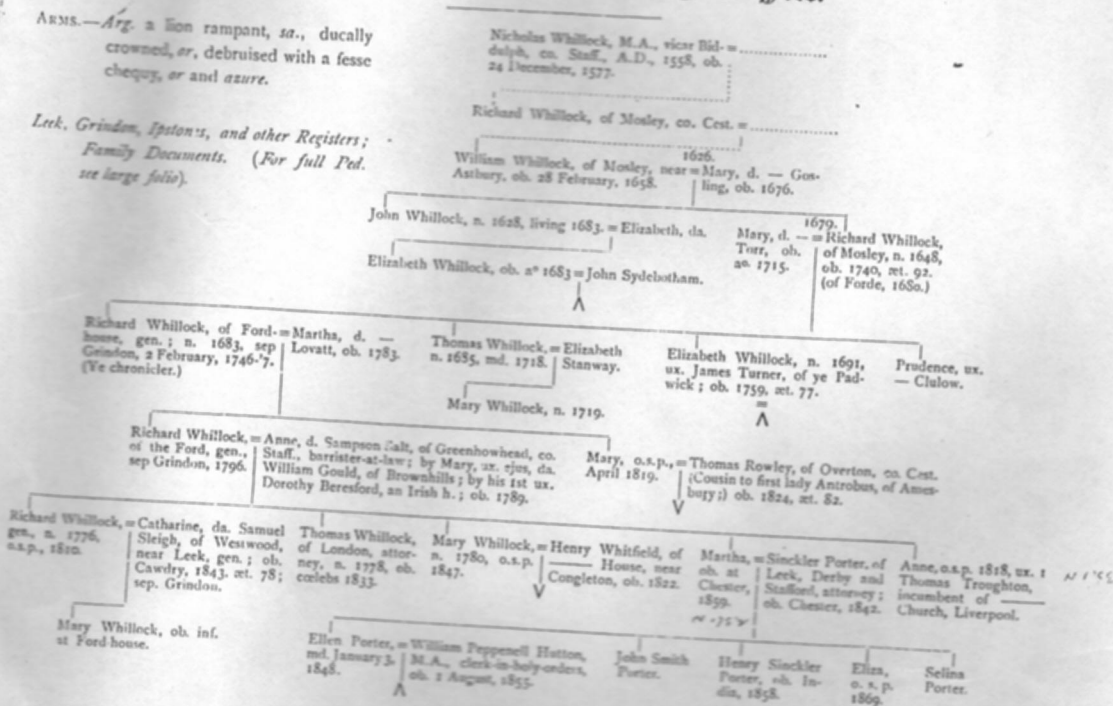 ARMS.—Arg. a lion rampant, sa., ducally
crowned, or, debruised with a fesse
chequy, or and azure.
Leek, Grindon, Ipstones, and other Registers;
Family Documents. (For full Ped.
see large folio).
Nicholas Whillock, M.A., vicar Bid- =
dulph, co. Staff., A.D., 1558, ob.
24 December, 1577.
Richard Whillock, of Mosley, co. Cest. =
1626.
William Whillock, of Mosley, near = Mary, d. — Gos-
Astbury, ob. 28 February, 1658. ling, ob. 1676.
John Whillock, n. 1628, living 1683. = Elizabeth, da.
1679.
Mary, d. — = Richard Whillock,
Torr, ob. of Mosley, n. 1648,
aº. 1715. ob. 1740, æt. 92.
(of Forde, 1680.)
Elizabeth Whillock, ob. aº 1683 = John Sydebotham.
Richard Whillock, of Ford- = Martha, d. —
house, gen.; n. 1683, sep Lovatt, ob. 1783.
Grindon, 2 February, 1746-'7.
(Ye chronicler.)
Thomas Whillock, = Elizabeth
n. 1685, md. 1718. Stanway.
Elizabeth Whillock, n. 1691,
ux. James Turner, of ye Pad-
wick; ob. 1759, æt. 77.
=
Prudence, ux.
— Clulow.
Mary Whillock, n. 1719.
Richard Whillock, = Anne, d. Sampson Salt, of Greenhowhead, co.
of the Ford, gen., Staff., barrister-at-law; by Mary, ux. ejus, da.
sep Grindon, 1796. William Gould, of Brownhills; by his 1st ux.
Dorothy Beresford, an Irish h.; ob. 1789.
Mary, o.s.p., = Thomas Rowley, of Overton, co. Cest.
April 1819. (Cousin to first lady Antrobus, of Ames-
bury;) ob. 1824, æt. 82.
Richard Whillock, = Catharine, da. Samuel
gen., n. 1776, Sleigh, of Westwood,
o.s.p., 1810. near Leek, gen.; ob.
Cawdry, 1843. æt. 78;
sep. Grindon.
Thomas Whillock,
of London, attor-
ney, n. 1778, ob.
cœlebs 1833.
Mary Whillock, = Henry Whitfield, of
n. 1780, o.s.p. —— House, near
1847. Congleton, ob. 1822.
Martha, = Sinckler Porter, of
ob. at Leek, Derby and
Chester, Stafford, attorney;
1859. ob. Chester, 1842.
Anne, o.s.p. 1818, ux. 1
Thomas Troughton,
incumbent of ——
Church, Liverpool.
Mary Whillock, ob. inf.
at Ford-house.
Ellen Porter, = William Peppenell Hutton,
md. January 3, M.A., clerk-in-holy-orders,
1848. ob. 1 August, 1855.
John Smith
Porter.
Henry Sinckler
Porter, ob. In-
dia, 1858.
Eliza,
o. s. p.
1869.
Selina
Porter.